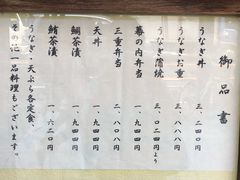 御品書
うなぎ丼 三、二四〇円
うなぎお重 三、二四〇円
うなぎ蒲焼 三、〇二四円より
幕の内弁当 一、九四四円
三重弁当 二、八〇八円
天丼 一、九四四円
鯛茶漬 一、九四四円
鮪茶漬 一、六二〇円
うなぎ・天ぷら各定食、
その他一品料理もございます。